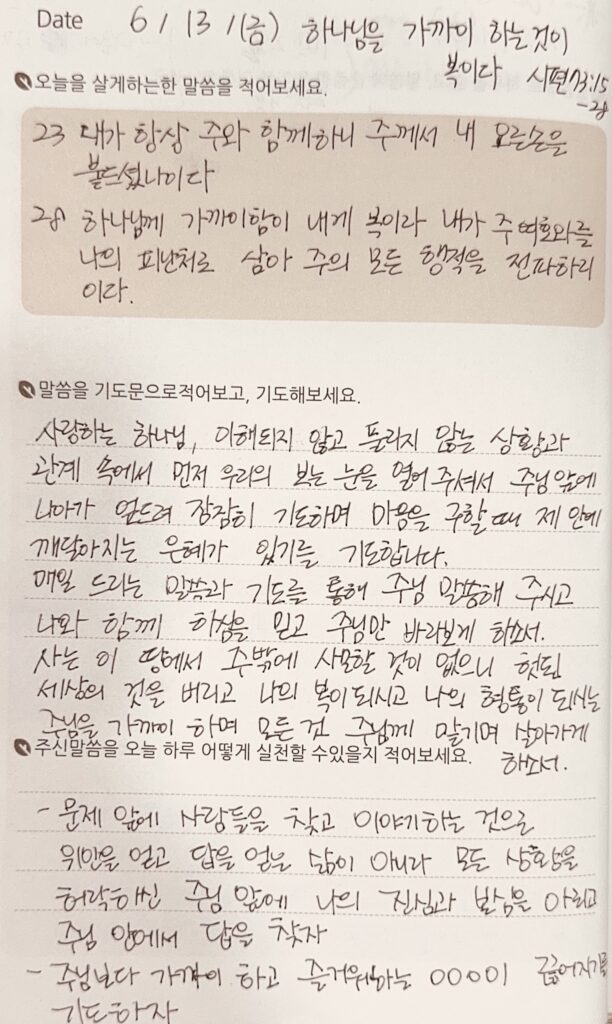 Date 6 / 13 / (금) 하나님을 가까이 하는 것이
복이다 시편 73:15
-28
오늘을 살게하는한 말씀을 적어보세요.
23 내가 항상 주와 함께하니 주께서 내 오른손을
붙드셨나이다
28 하나님께 가까이함이 내게 복이라 내가 주 여호와를
나의 피난처로 삼아 주의 모든 행적을 전파하리
이다.
말씀을 기도문으로적어보고, 기도해보세요.
사랑하는 하나님, 이해되지 않고 풀리지 않는 상황과
관계 속에서 먼저 우리의 보는 눈을 열어 주셔서 주님 앞에
나아가 엎드려 잠잠히 기도하며 마음을 구할 때 제 안에
깨달아지는 은혜가 있기를 기도합니다.
매일 드리는 말씀과 기도를 통해 주님 말씀해 주시고
나와 함께 하심을 믿고 주님만 바라보게 하소서.
사는 이 땅에서 주밖에 사모할 것이 없으니 헛된
세상의 것을 버리고 나의 복이 되시고 나의 형통이 되시는
주님을 가까이 하며 모든 것 주님께 맡기며 살아가게
하소서.
주신말씀을 오늘 하루 어떻게 실천할 수있을지 적어보세요.
- 문제 앞에 사람들을 찾고 이야기하는 것으로
위안을 얻고 답을 얻는 삶이 아니라 모든 상황을
허락하신 주님 앞에 나의 진심과 본심을 아뢰고
주님 앞에서 답을 찾자
- 주님보다 가까이 하고 즐거워하는 0000이 끊어지기를
기도하자